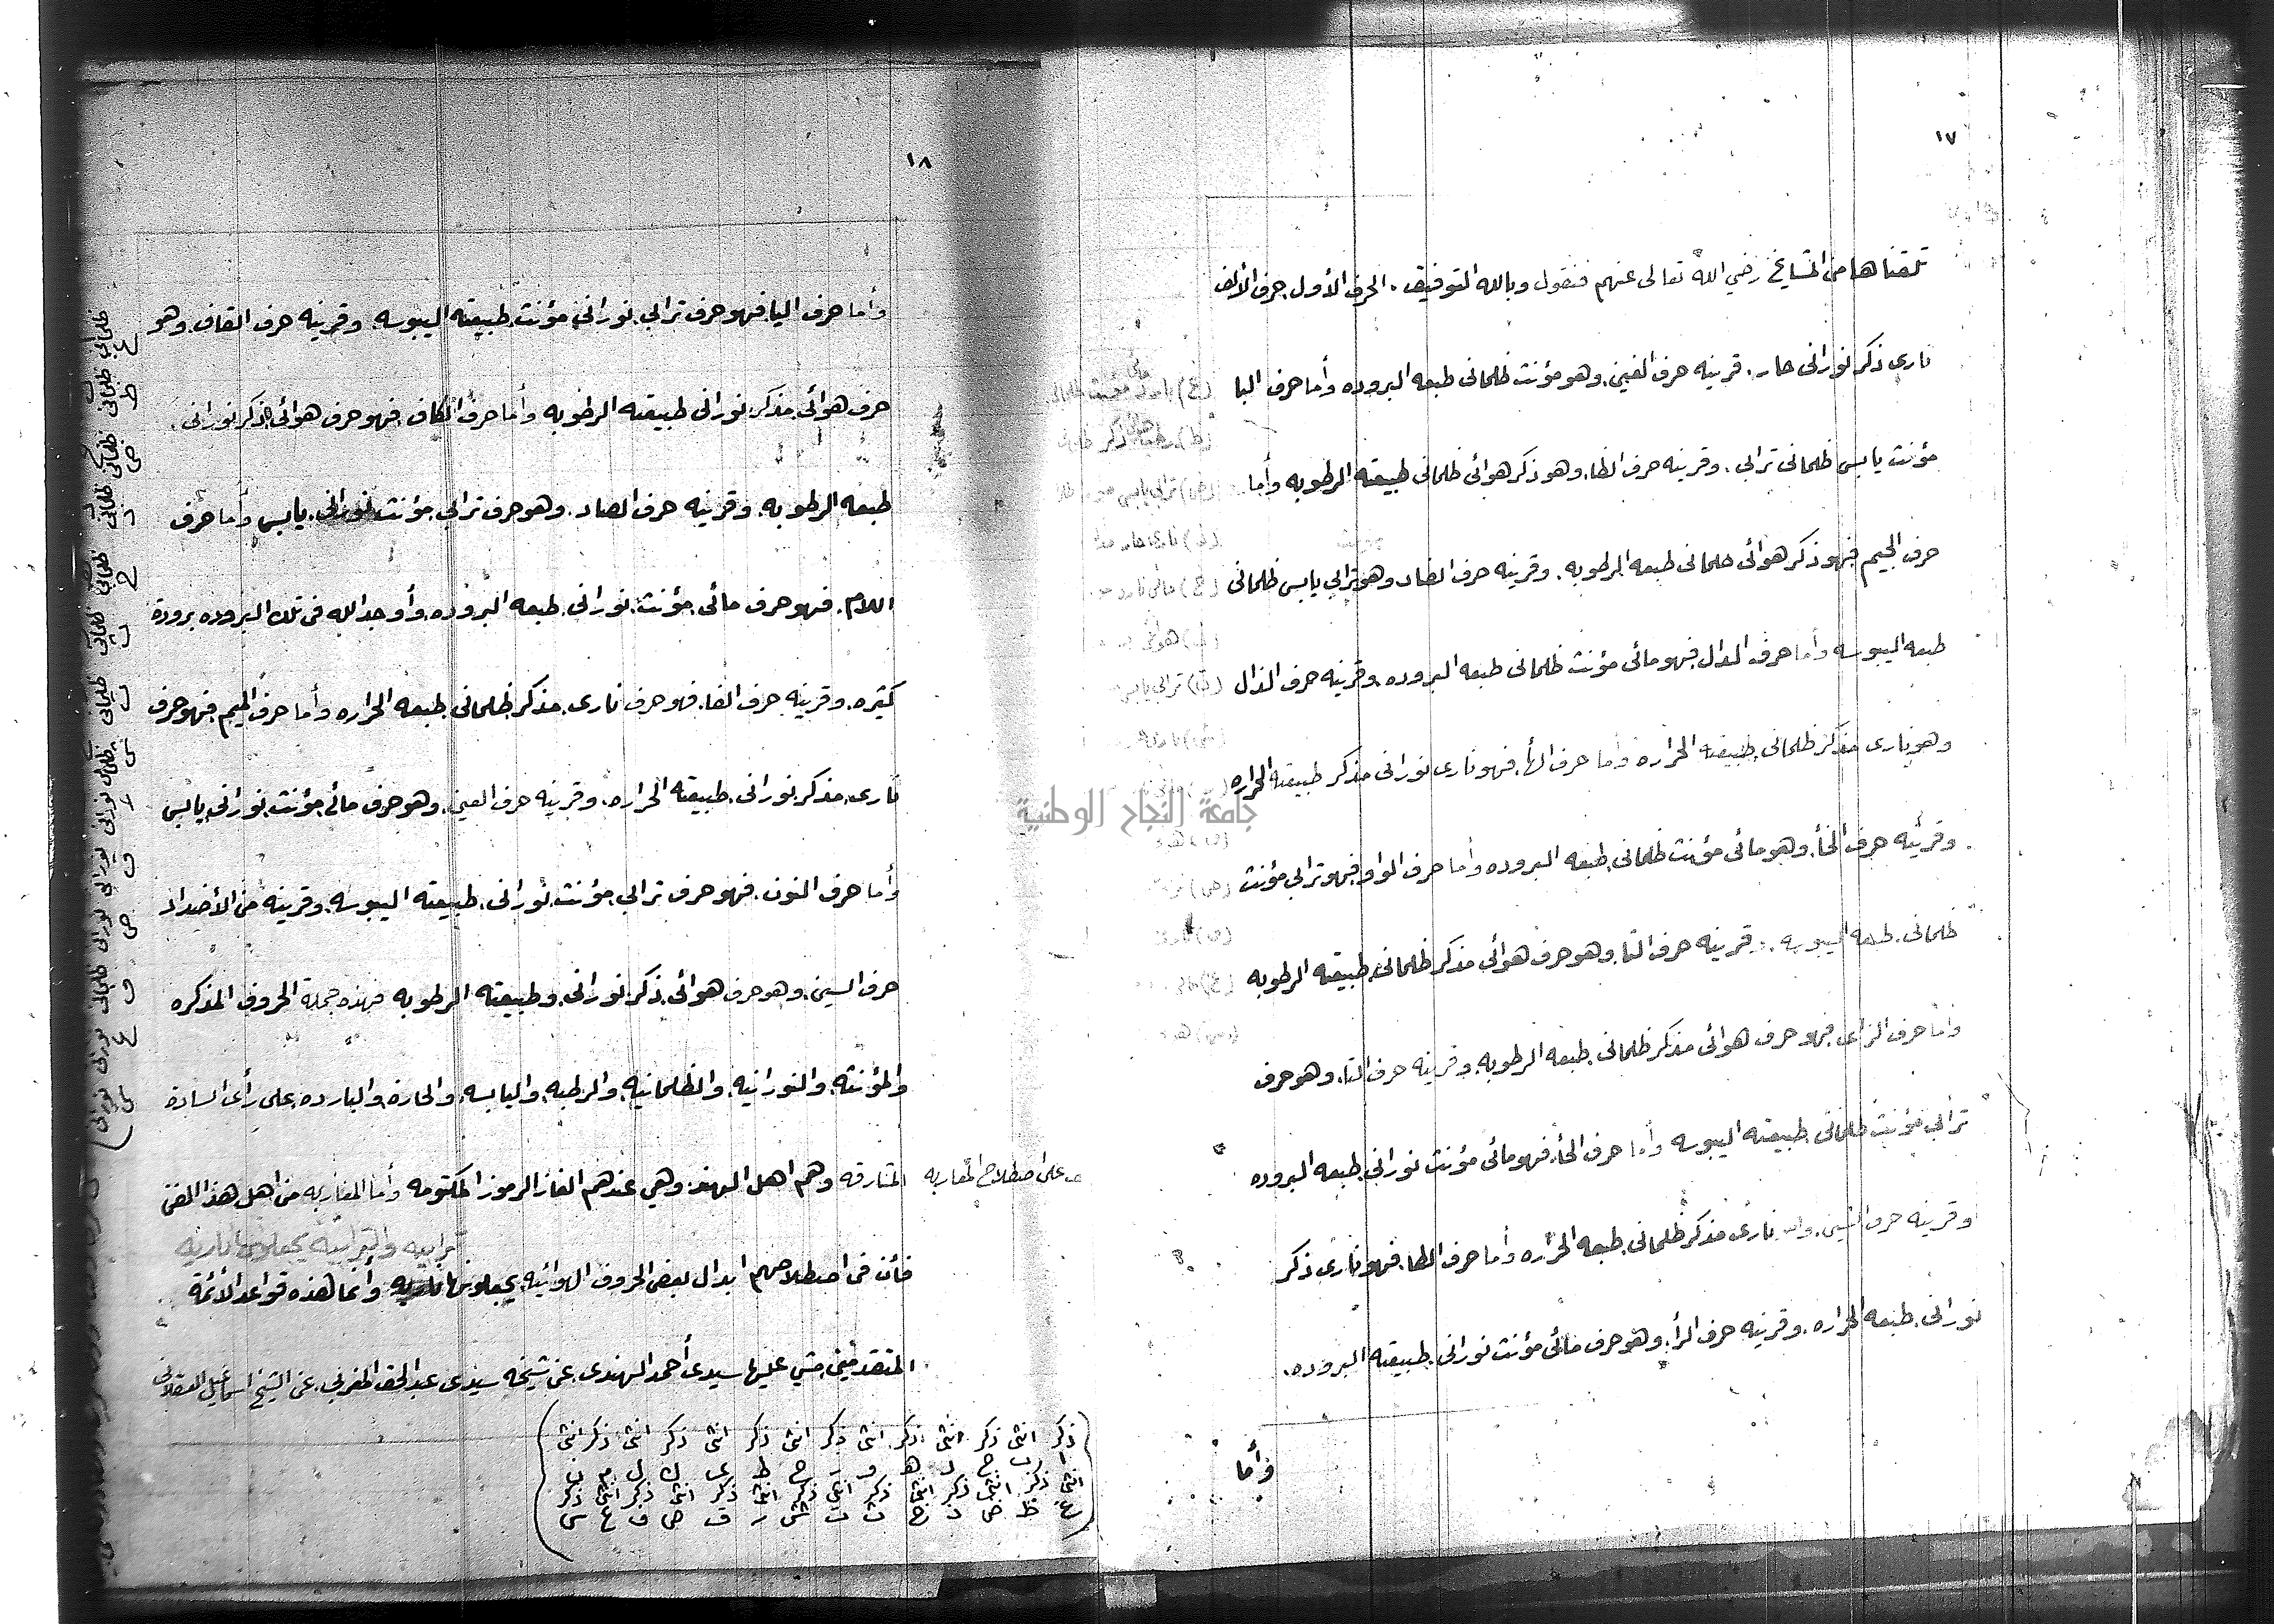 ١٧
تلقناها من المشايخ رضي الله تعالى عنهم فنقول وبالله التوفيق . الحرف الأول حرف الألف
نارى ذكر نورانى حار . قرينه حرف الغين وهو مؤنث ظلمانى طبعه البروده وأما حرف البا
مؤنث يابس ظلمانى ترابي . وقرينه حرف الظا . وهو ذكر هوائى ظلمانى طبيعته الرطوبه وأما
حرف الجيم فهو ذكر هوائى ظلمانى طبعه الرطوبه . وقرينه حرف الضاد وهو ترابي يابس ظلمانى
طبعه اليبوسه وأما حرف الدال فهو مائى مؤنث ظلمانى طبعه البروده وقرينه حرف الذال
وهو نارى مذكر ظلمانى طبيعته الحراره وأما حرف الهأ . فهو نارى نورانى مذكر طبيعته الحراره
وقرينه حرف الخأ . وهو مائى مؤنث ظلمانى طبعه البروده وأما حرف الواو فهو ترابي مؤنث
ظلمانى . طبعه اليبوسه . قرينه حرف الثا وهو حرف هوائى مذكر ظلمانى طبيعته الرطوبه
وأما حرف الزاى فهو حرف هوائى مذكر ظلمانى . طبعه الرطوبه وقرينه حرف التا . وهو حرف
ترابي مؤنث ظلمانى طبيعته اليبوسه وأما حرف الحأ . فهو مائى مؤنث نورانى طبعه البروده
وقرينه حرف الشين . نارى مذكر ظلمانى طبعه الحراره وأما حرف الطا . فهو نارى ذكر
نورانى . طبعه الحراره . وقرينه حرف الرأ . وهو حرف مائى مؤنث نورانى . طبيعته البروده .
وأما
١٨
وأما حرف اليا فهو حرف ترابي نورانى مؤنث طبيعته اليبوسه . وقرينه حرف القاف . وهو
حرف هوائى مذكر نورانى طبيعته الرطوبه وأما حرف الكاف . فهو حرف هوائى مذكر نورانى .
طبعه الرطوبه . وقرينه حرف الصاد . وهو حرف ترابي مؤنث نورانى . يابس وأما حرف
اللام . فهو حرف مائى . مؤنث نورانى . طبعه البروده . وأوجد الله فى تلك البروده برودة
كثيره . وقرينه حرف الفا . فهو حرف نارى . مذكر ظلمانى . طبعه الحراره وأما حرف الميم فهو حرف
نارى . مذكر نورانى . طبيعته الحراره . وقرينه حرف العين . وهو حرف مائى مؤنث نورانى يابس
وأما حرف النون . فهو حرف ترابي مؤنث نورانى . طبيعته اليبوسه . وقرينه من الأضداد
حرف السين . وهو حرف هوائى . ذكر نورانى . وطبيعته الرطوبه فهذه جملة الحروف المذكره
والمؤنثه . والنورانيه . والظلمانيه . والرطبه . واليابسه . والحاره والبارده . على رأى الساده
المشارقه وهم اهل الهند . وهي عندهم الغاز الرموز المكتومه وأما المغاربه من اهل هذا الفن
على اصطلاح المغاربه
ترابيه والترابيه يجعلونها ناريه
فأن فى اصطلاحهم ابدال بعض الحروف الهوائيه . يجعلونها وأنما هذه قواعد الأئمة
المتقدمين مشي عليها سيدى أحمد الهندى . عن شيخه سيدى عبد الحق المغربي . عن الشيخ اسماعيل
ذكر انثى ذكر انثى ذكر انثى ذكر انثى ذكر انثى ذكر انثى ذكر انثى
ا ب ج د هـ و ز ح ط ى ك ل م ن
انثى ذكر انثى ذكر انثى ذكر انثى ذكر انثى ذكر انثى ذكر انثى ذكر
غ ظ ض ذ خ ث ت ش ر ق ص ف ع س